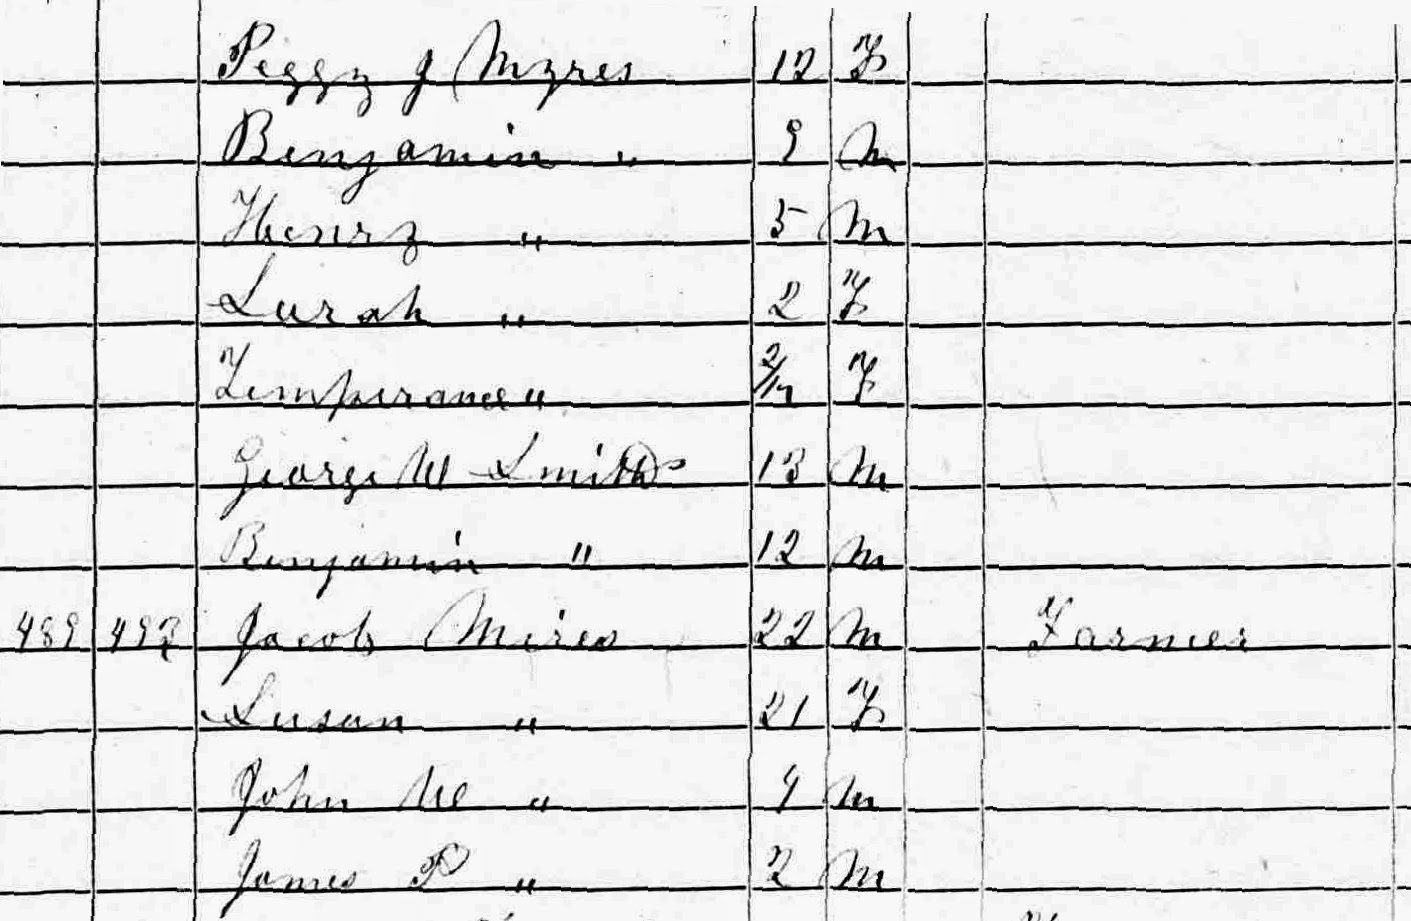 Peggy J Myres 12 F
Benjamin " 9 M
Henry " 5 M
Surah " 2 F
Temperance " 2/12 F
George W Smith 13 M
Benjamin " 12 M
489 497 Jacob Mires 22 M Farmer
Susan " 21 F
John W " 4 M
James P " 2 M